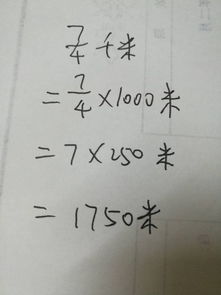 7/4 千米
= 7/4 ×1000米
= 7×250 米
= 1750米